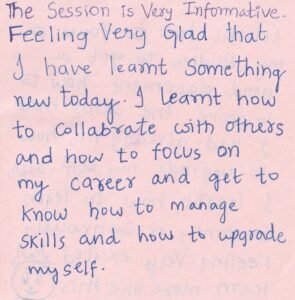 The Session is Very Informative.
Feeling Very Glad that
I have learnt Something
new today. I learnt how
to collabrate with others
and how to focus on
my career and get to
know how to manage
skills and how to upgrade
myself.